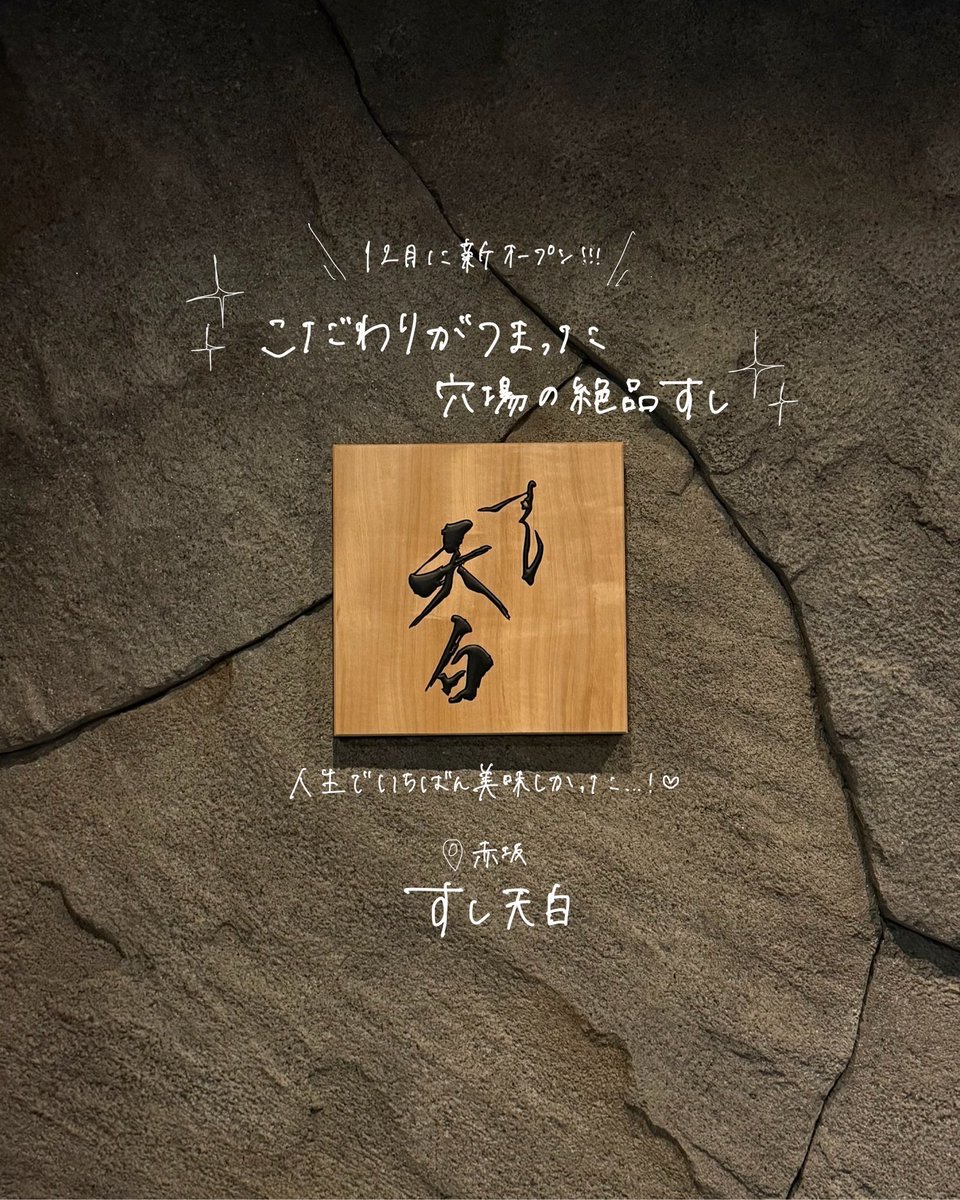 12月に新オープン!!!
こだわりがつまった
穴場の絶品すし
すし
天白
人生でいちばん美味しかった...!♡
赤坂
すし天白